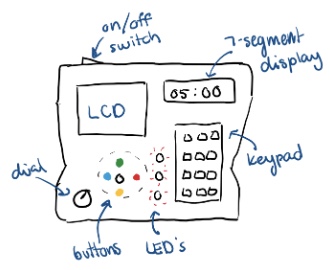 on/off
switch
7-segment
display
05:00
LCD
keypad
dial
buttons
LED's